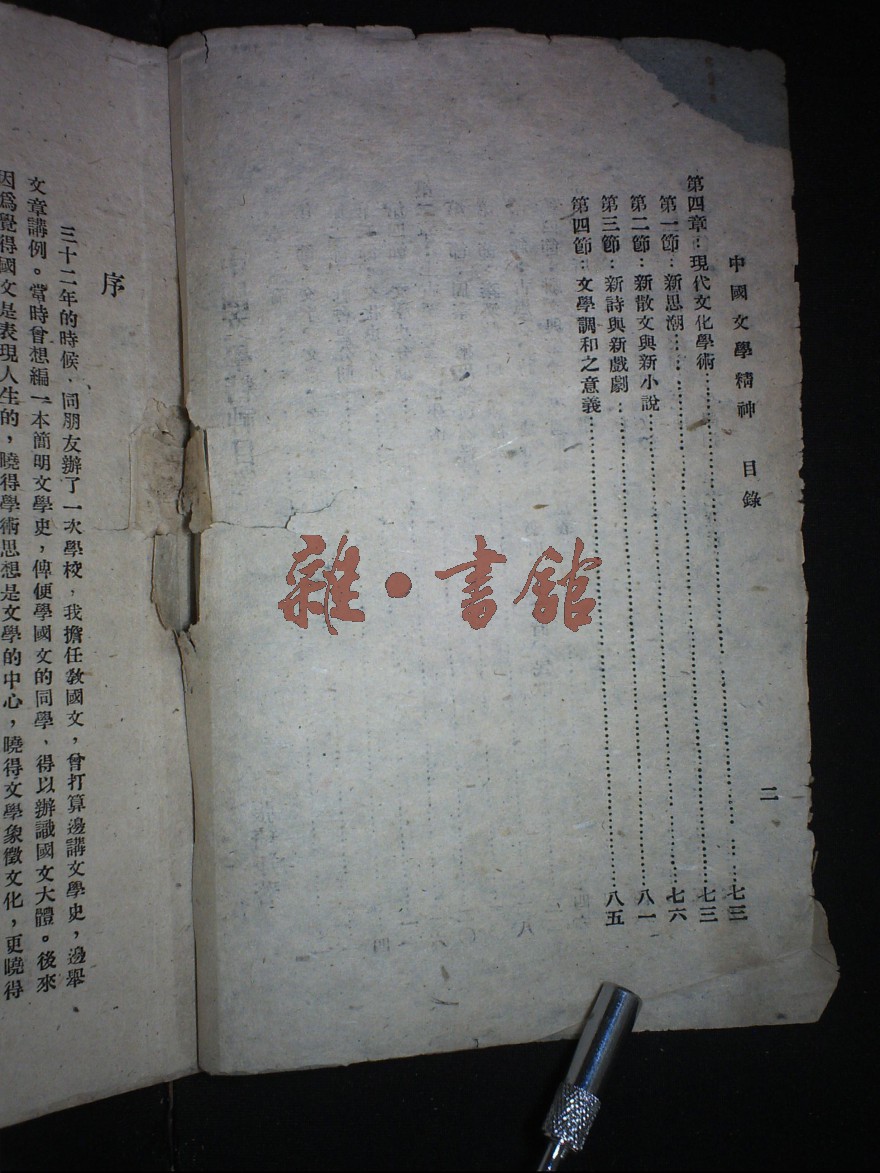 中國文學精神 目錄 二
第四章：現代文化學術……七三
第一節：新思潮……七三
第二節：新散文與新小說……七六
第三節：新詩與新戲劇……八一
第四節：文學調和之意義……八五
序
三十二年的時候，同朋友辦了一次學校，我擔任敎國文，曾打算邊講文學史，邊舉
文章講例。當時曾想編一本簡明文學史，俾便學國文的同學、得以辦識國文大體。後來
因爲覺得國文是表現人生的，曉得學術思想是文學的中心，曉得文學象徵文化，更曉得
雜·書館